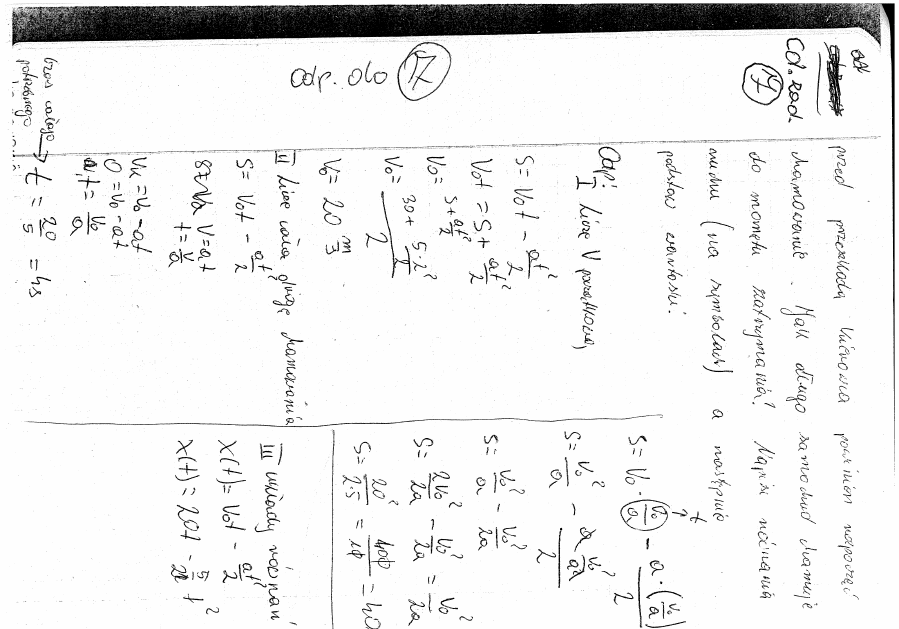 cd. zad.
7
przed przeszkodą kierowca powinien rozpocząć
hamowanie. Jak długo samochód hamuje
do momentu zatrzymania? Napisz równania
ruchu (na symbolach) a następnie
podstaw wartości.
Odp. do 7
Odp:
I liczę V początkową
S = V₀t - at²/2
V₀t = S + at²/2
V₀ = (S + at²/2)/
V₀ = (30 + 5·2²/2)/2
V₀ = 20 m/s
II liczę całą drogę hamowania
S = V₀t - at²/2
V = at
t = V/a
Vk = V₀ - at
0 = V₀ - at
t = V₀/a
t = 20/5 = 4s
S = V₀·(V₀/a) - a·(V₀/a)²/2
t
S = V₀²/a - a V₀²/a²/2
S = V₀²/a - V₀²/2a
S = 2V₀²/2a - V₀²/2a = V₀²/2a
S = 20²/2·5 = 400/10 = 40
III układy równań
X(t) = V₀t - at²/2
X(t) = 20t - 5/2 t²